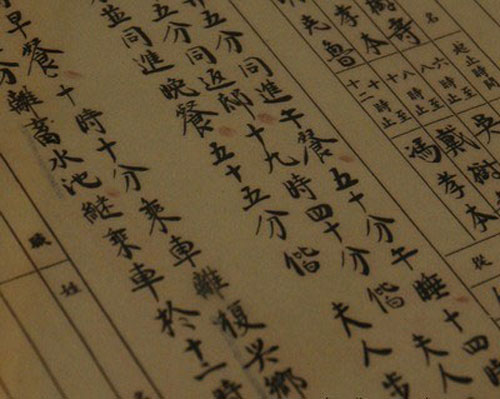 名
樹壽
孝本
夫魯
起止時間
時止
吳樹
戴孝本
馮
從
五分同進午餐五十分午睡十四時
五分同返邸十九時四十分偕夫人
並同進晚餐五十五分偕夫人步
早餐十時十分乘車離復興鄉
分離蓄水池繼乘車於十二時
職
姓